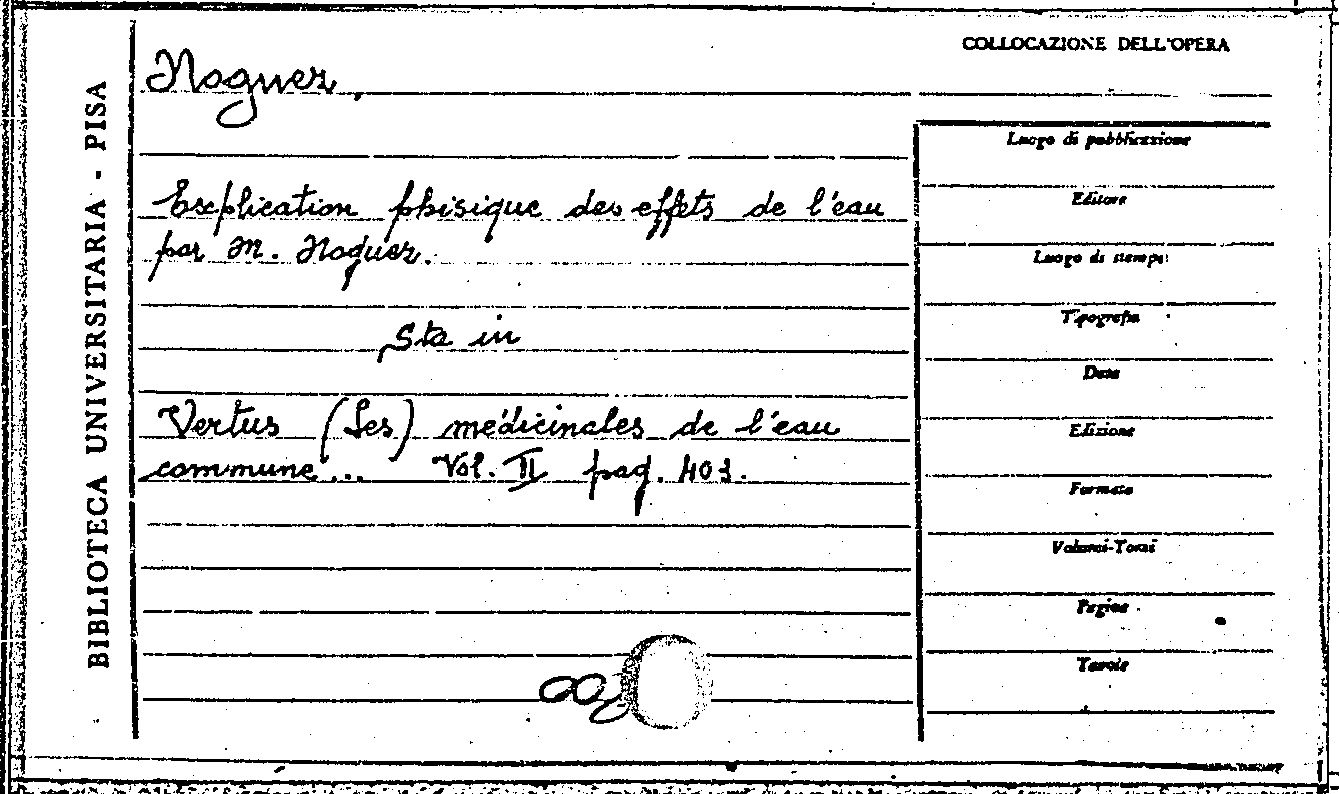 BIBLIOTECA UNIVERSITARIA - PISA
COLLOCAZIONE DELL'OPERA
Noguez,
Explication phisique des effets de l'eau
par M. Noguez.
Sta in
Vertus (Les) médicinales de l'eau
commune... Vol. II pag. 403.
Luogo di pubblicazione
Editore
Luogo di stampa
Tipografia
Data
Edizione
Formato
Volumi-Tomi
Pagine
Tavole